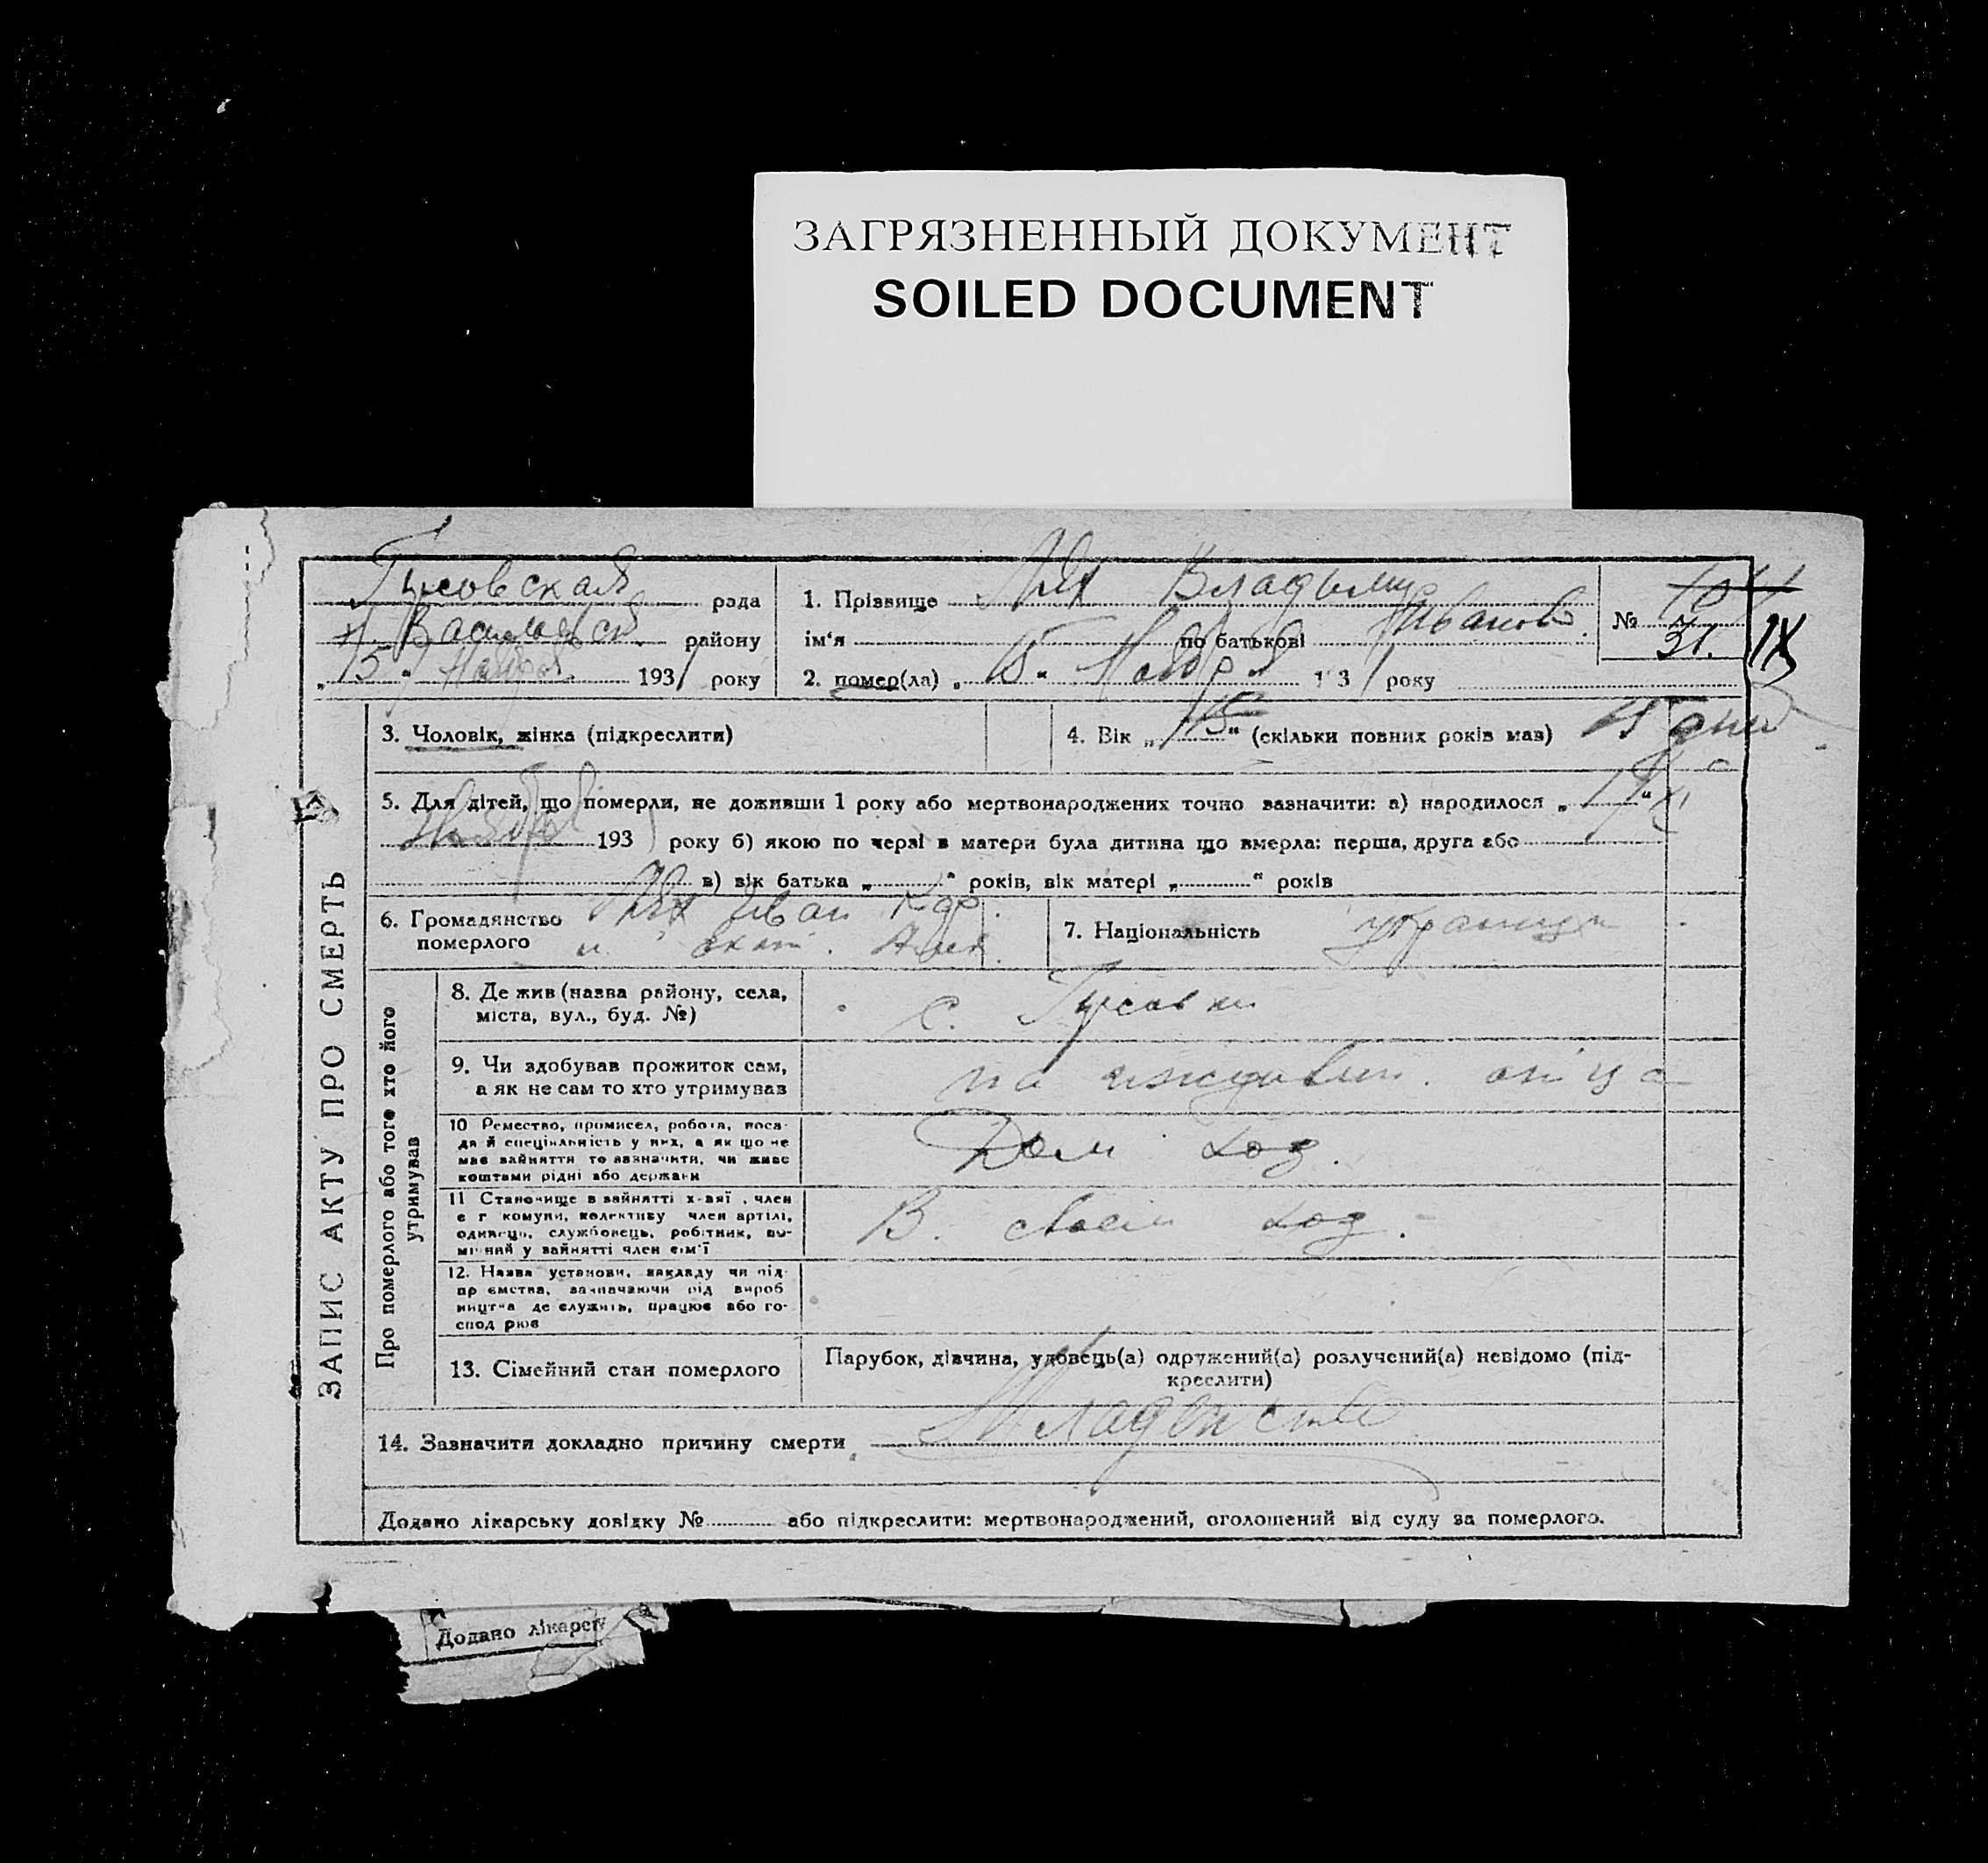 ЗАГРЯЗНЕННЫЙ ДОКУМЕНТ
SOILED DOCUMENT
рада
району
15 193 1 року
1. Прізвище Владымир
ім‘я по батькові Иванов.
2. помер(ла) „ 15 “ Ноября 1 3 1 року
№
31. IX
ЗАПИС АКТУ ПРО СМЕРТЬ
3. Чоловік, жінка (підкреслити)
4. Вік „ 15 “ (скільки повних років мав) дней
5. Для дітей, що померли, не доживши 1 року або мертвонароджених точно зазначити: а) народилося „ “
193 року б) якою по черзі в матери була дитина що вмерла: перша, друга або
в) вік батька „ “ років, вік матері „ “ років
6. Громадянство Иван
померлого и
7. Національність украинец
Про померлого або того хто його
утримував
8. Де жив (назва району, села,
міста, вул., буд. №)
с.
9. Чи здобував прожиток сам,
а як не сам то хто утримував
на иждивен. отца
10 Ремество, промисел, робота, поса-
да й спеціяльність у них, а як що не
має зайняття то зазначити, чи живе
коштами рідні або держави
Дом хоз.
11 Становище в зайнятті х-зяї , член
с г комуни, колективу член артілі,
одинець, службовець, робітник, по-
мічний у зайнятті член сім‘ї
В. своем хоз.
12. Назва установи, закладу чи під-
пр ємства, зазначаючи рід вироб
ництва де служить, працює або го-
спод рює
13. Сімейний стан померлого
Парубок, дівчина, удовець(а) одружений(а) розлучений(а) невідомо (під-
креслити)
14. Зазначити докладно причину смерти
Додано лікарську довідку № або підкреслити: мертвонароджений, оголошений від суду за померлого.
Додано лікарсь